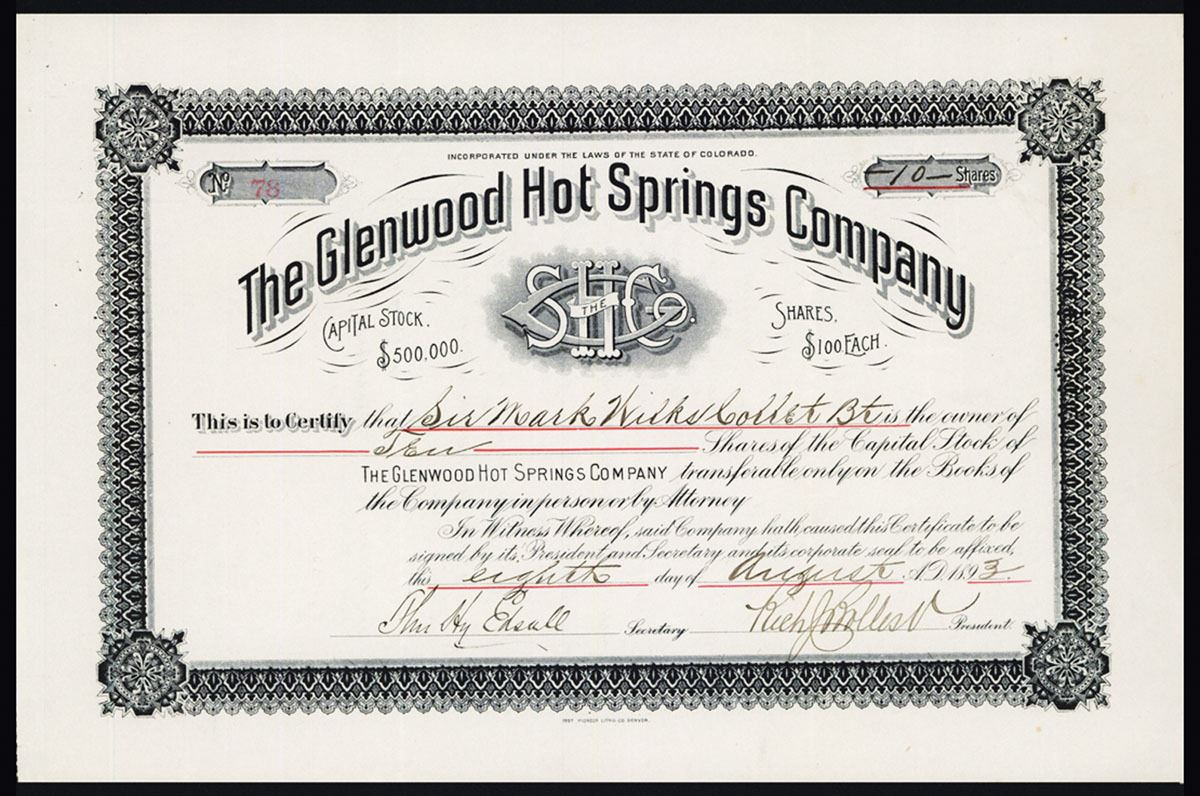 INCORPORATED UNDER THE LAWS OF THE STATE OF COLORADO.
No 78
—10— Shares
The Glenwood Hot Springs Company
THE GHSCo.
CAPITAL STOCK.
$500,000.
SHARES,
$100 EACH.
This is to Certify that Sir Mark Wilks Collet Bt is the owner of
Ten Shares of the Capital Stock of
THE GLENWOOD HOT SPRINGS COMPANY transferable only on the Books of
the Company in person or by Attorney
In Witness Whereof, said Company hath caused this Certificate to be
signed by its President and Secretary and its corporate seal to be affixed,
this eighth day of August A.D. 1893.
Edsall Secretary President.
PIONEER LITHO. CO. DENVER.